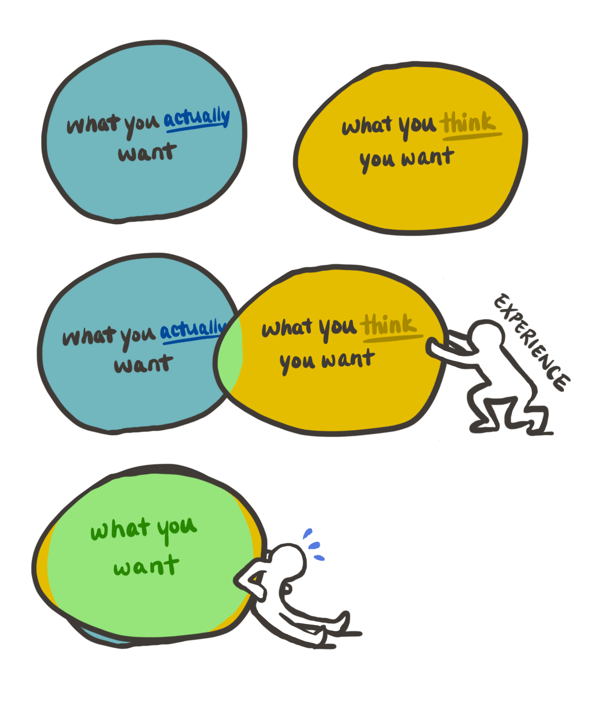 what you actually
want
what you think
you want
what you actually
want
what you think
you want
EXPERIENCE
what you
want